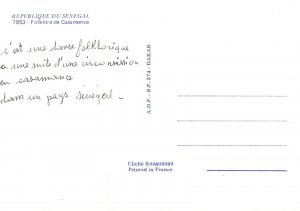 REPUBLIQUE DU SENEGAL
7953 - Folklore de Casamance
c'est une danse folklorique
a une suite d'une inconsission
en casamance
dans un pays Sénégal -
A.D.P. - B.P. 874 - DAKAR
Cliché
Printed in France